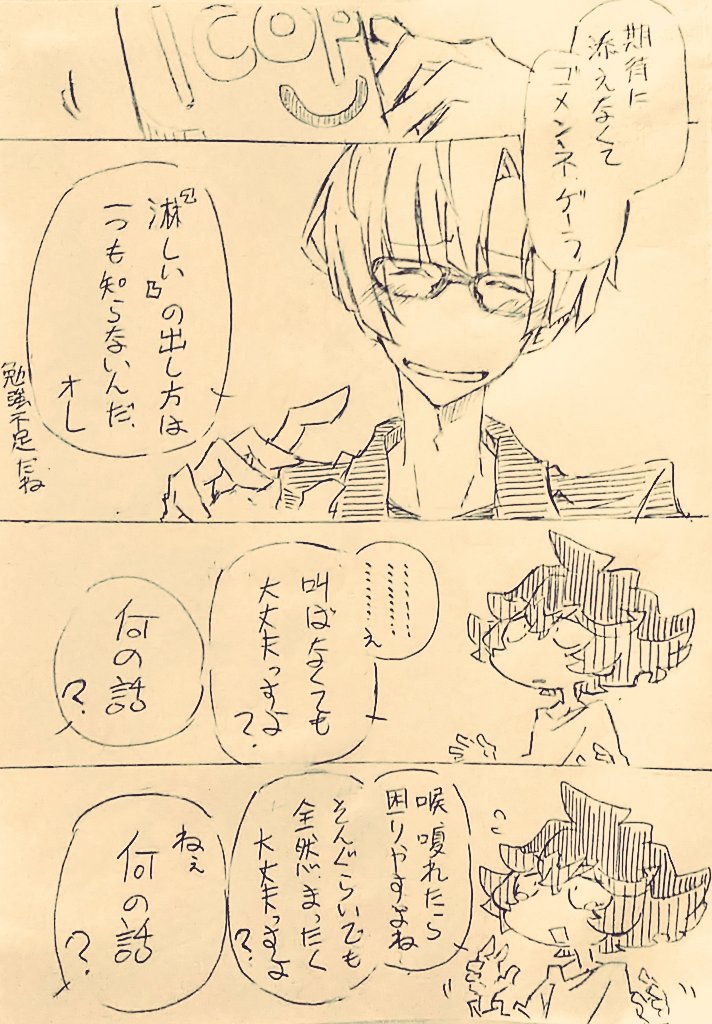 ICOP
期待に
添えなくて
ゴメンネ、ゲーラ
『淋しい』の出し方は
一つも知らないんだ、
オレ
勉強不足だね
………
………
………え
叫ばなくても
大丈夫っすよ
?
何の話
?
喉嗄れたら
困りやすよね
そんぐらいでも
全然まったく
大丈夫っすよ
?
ねぇ
何の話
?